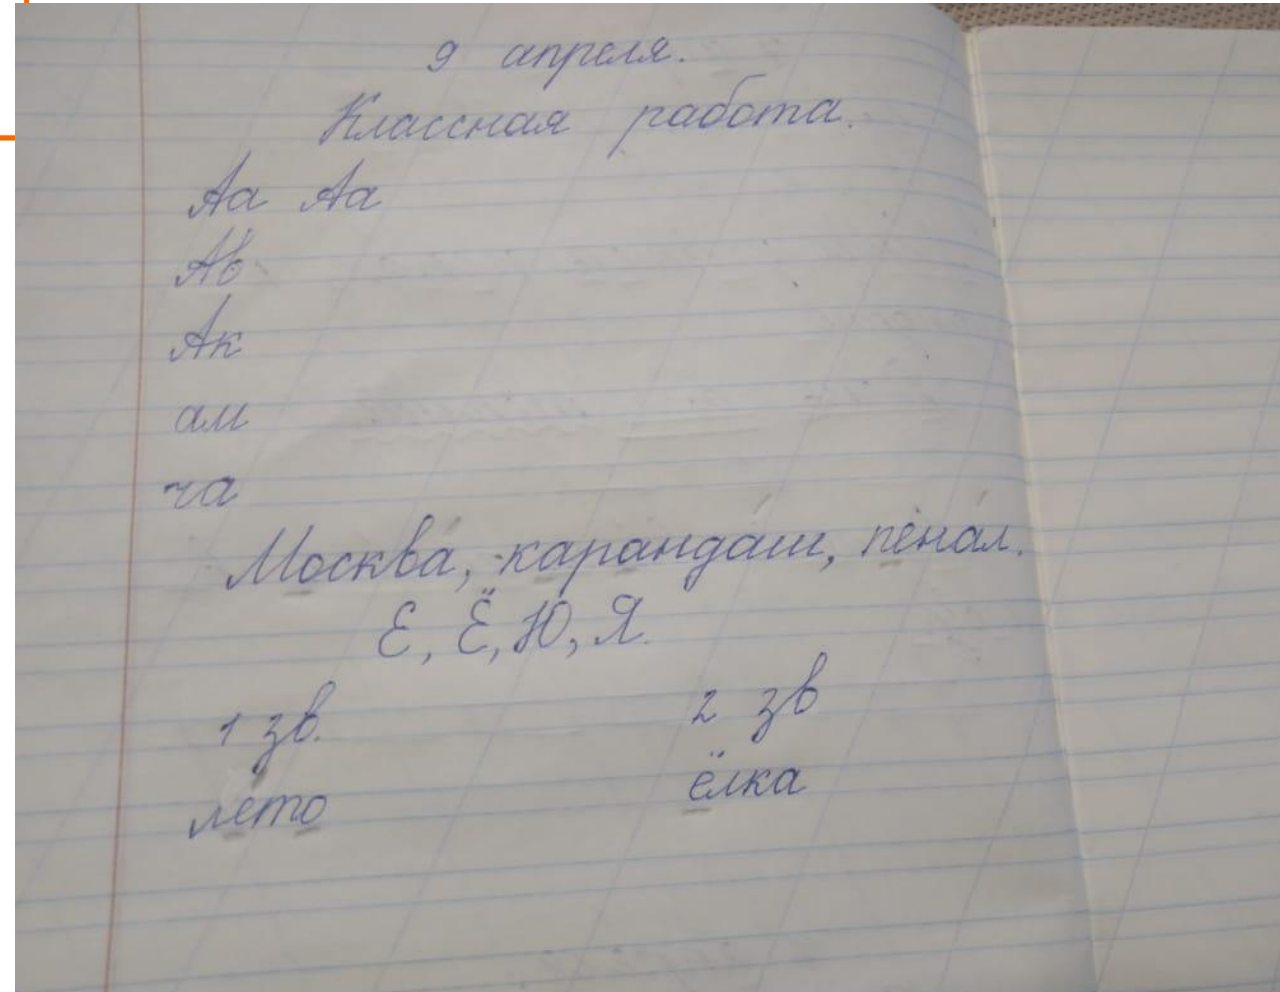 9 апреля.
Классная работа.
Аа Аа
Ав
Ак
ам
ча
Москва́, карандáш, пенáл.
Е, Ё, Ю, Я.
1 зв. 2 зв
лето ёлка